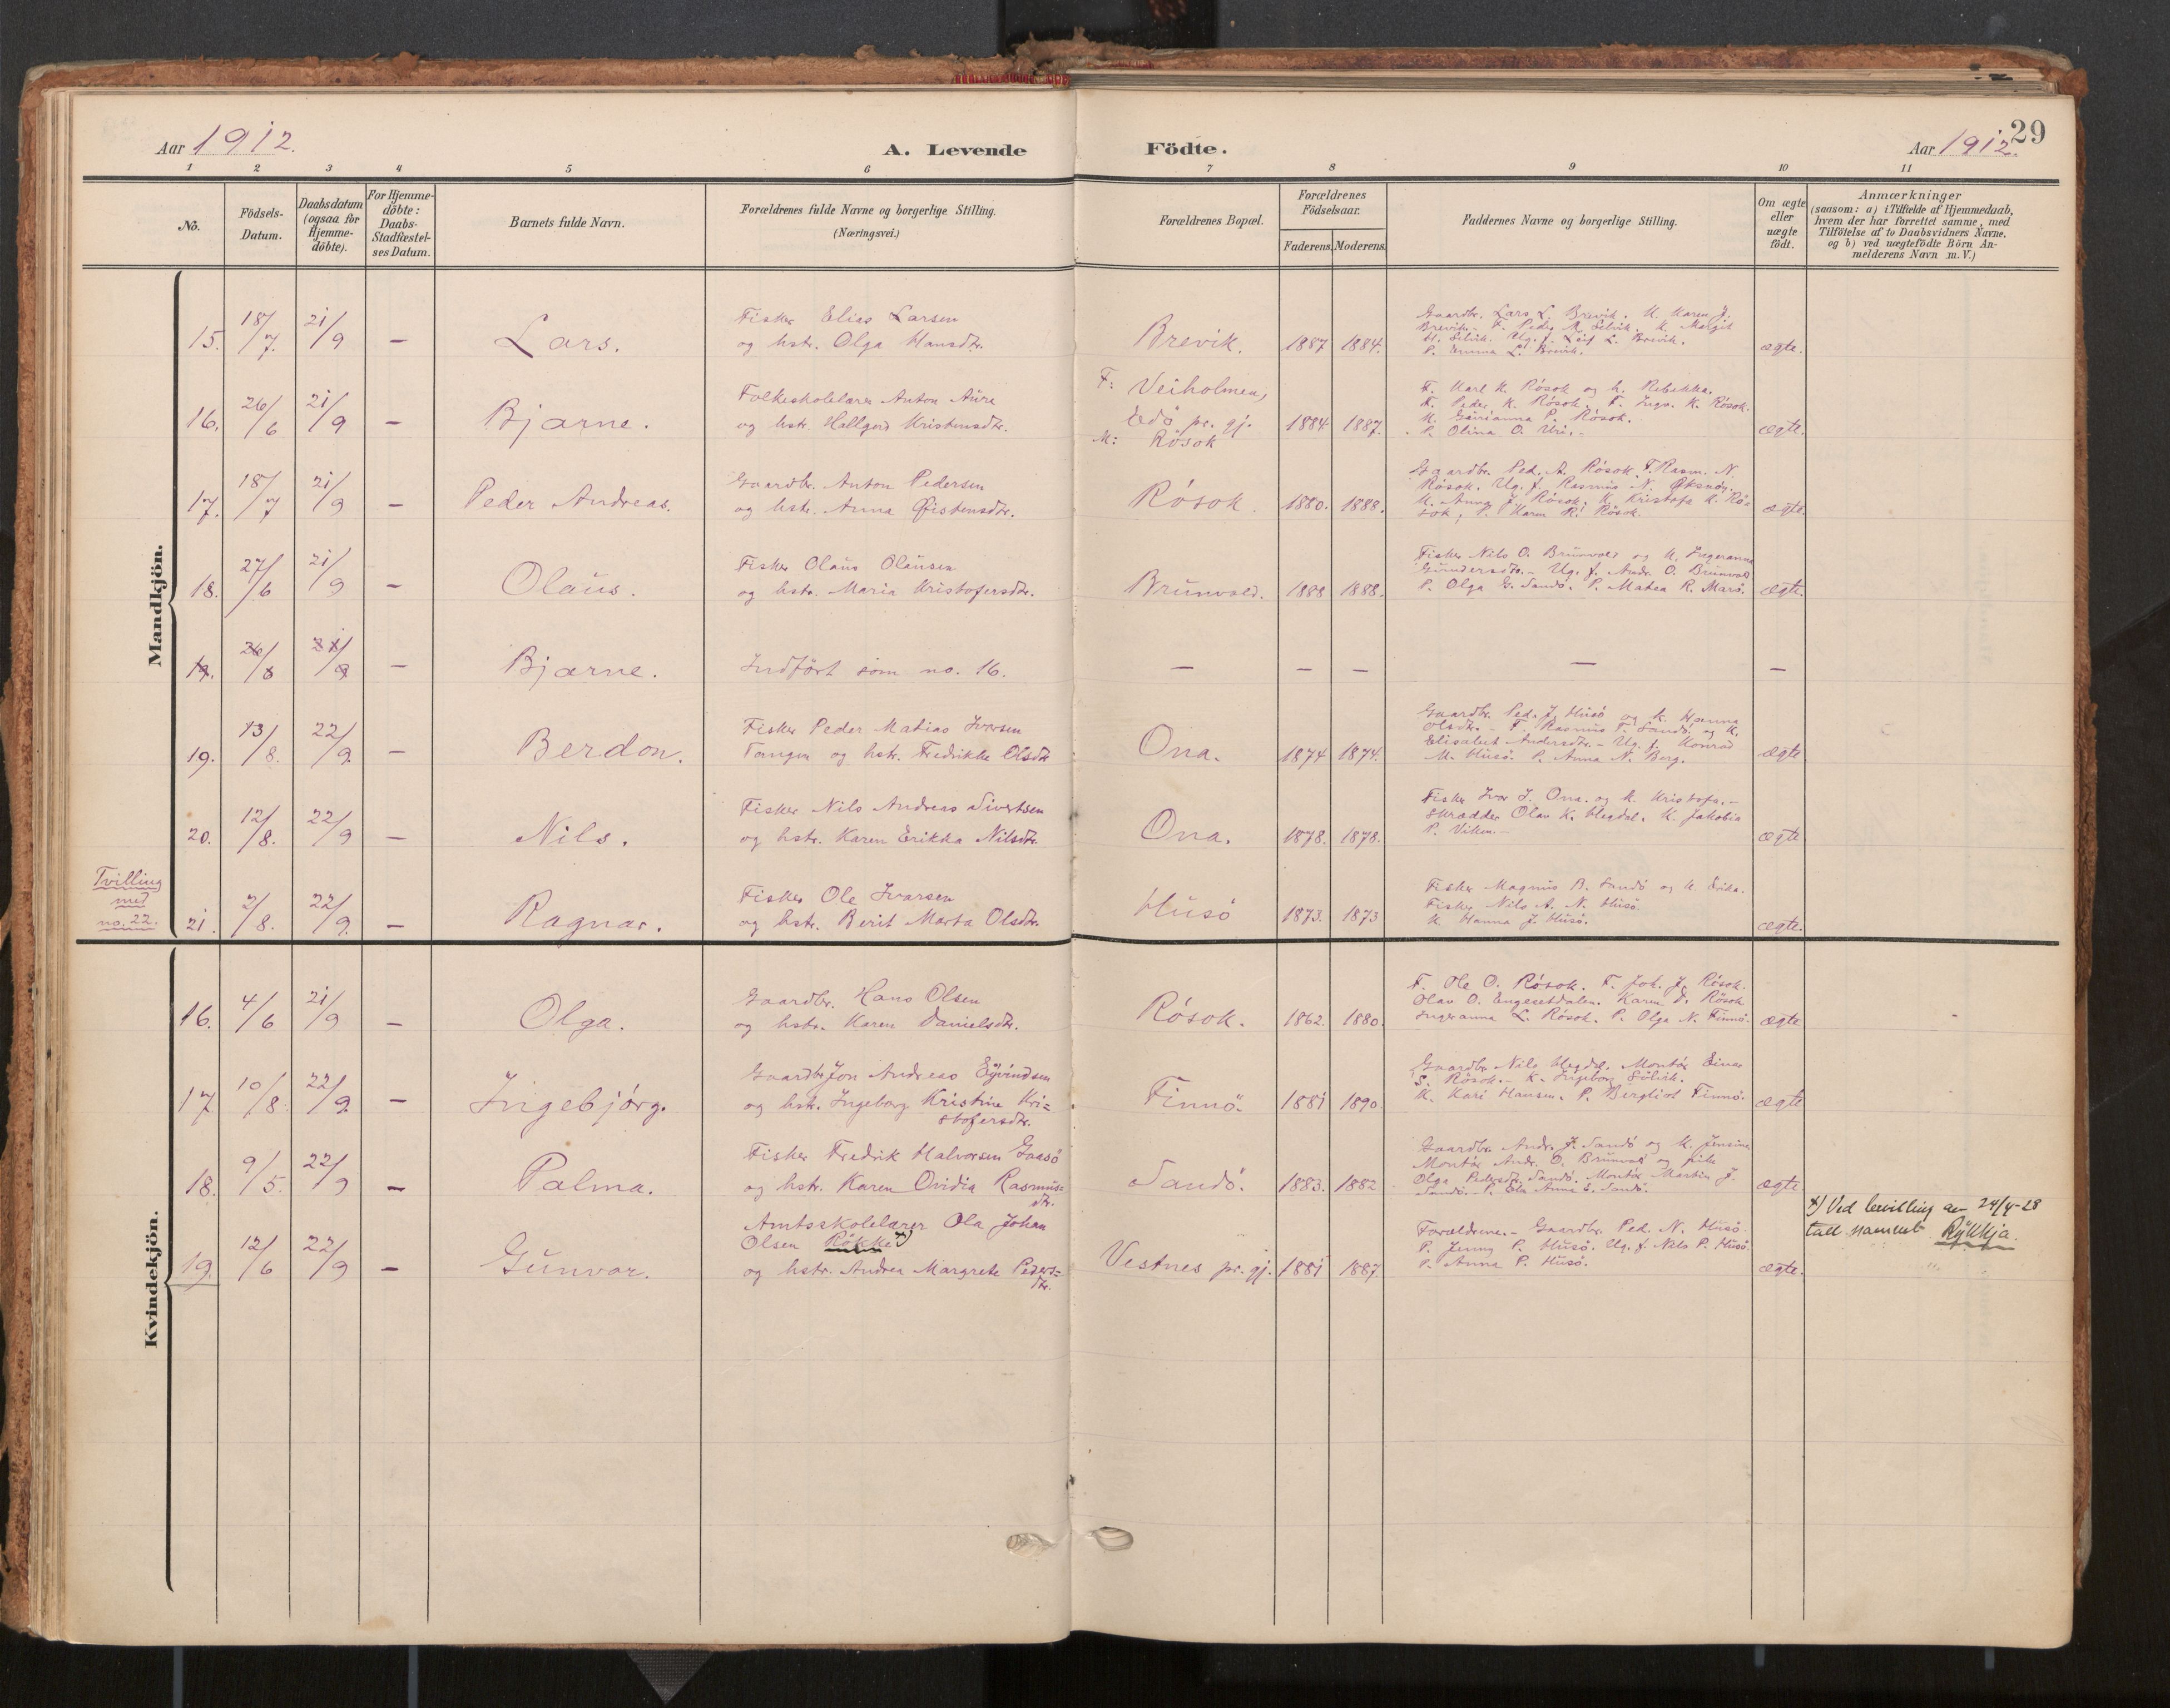 29
Aar 1912.
A. Levende Födte.
Aar 1912.
1 2 3 4 5 6 7 8 9 10 11
No.
Födsels-Datum.
Daabsdatum (ogsaa for Hjemme-döbte).
For Hjemme-döbte: Daabs-Stadfæstel-ses Datum.
Barnets fulde Navn.
Forældrenes fulde Navne og borgerlige Stilling.
(Næringsvei.)
Forældrenes Bopæl.
Forældrenes Födselsaar.
Faderens. Moderens.
Faddernes Navne og borgerlige Stilling.
Om ægte eller uægte födt.
Anmærkninger
(saasom: a) i Tilfælde af Hjemmedaab,
hvem der har forrettet samme, med
Tilföielse af to Daabsvidners Navne,
og b) ved uægtefödte Börn An-
melderens Navn m. V.)
Mandkjön.
15. 18/7. 21/9 – Lars.
Fisker Elias Larsen
og hstr. Olga Hansdtr.
Brevik. 1887 1884.
Gaardbr. Lars L. Brevik. K. Karen J.
Brevik. F. Peder A. Silvik. K. Margit
H. Silvik. Ug. f. Leif L. Brevik.
P. Emma L. Brevik.
ægte.
16. 26/6 21/9 – Bjarne.
Folkeskolelærer Anton Aure
og hstr. Hallgerd Kristensdtr.
F: Veiholmen,
Edö pr. gj.
M: Rösok
1884 1887.
F. Karl K. Rösok og h. Rebekka.
F. Peder K. Rösok. F. Inga. K. Rösok.
K. Gurianna P. Rösok.
P. Olina O. Uri.-
ægte.
17. 18/7 21/9 – Peder Andreas.
Gaardbr. Anton Pedersen
og hstr. Anna Öistensdtr.
Rösok. 1880. 1888.
Gaardbr. Ped. A. Rösok. F. Rasm. N.
Rösok. Ug. f. Rasmus N. Öksnöy.
K. Anna J. Rösok. K. Kristofa K. Rö-
sok, P. Karen R. Rösok.
ægte.
18. 27/6 21/9 – Olaus.
Fisker Olaus Olausen
og hstr. Maria Kristofersdtr.
Brunvold. 1888 1888.
Fisker Nils O. Brunvold og K. Ingeranna
Gundersdtr. - Ug. f. Andr. O. Brunvold
P. Olga G. Sandö. P. Matea R. Marö.
ægte.
19. 26/6 21/9 – Bjarne.
Indfört som no. 16.
– – – – –
19. 13/8. 22/9. – Berdon.
Fisker Peder Matias Ivarsen
Tangen og hstr. Fredrikke Olsdtr
Ona. 1874 1874.
Gaardbr. Ped. J. Husö og k. Hanna
Olsdtr. - F. Rasmus T. Sandö og K.
Elisabet Andersdtr. - Ug. f. Konrad
M. Husö. P. Anna N. Berg.
ægte
20. 12/8. 22/9 – Nils.
Fisker Nils Andreas Sivertsen
og hstr. Karen Erikka Nilsdtr.
Ona. 1878. 1878.
Fisker Ivar J. Ona. og k. Kristofa. -
Skrædder Olav K. Hegdal. K. Jakobia
P. Viken. -
ægte
Tvilling
med
no. 22.
21. 2/8. 22/9. – Ragnar.
Fisker Ole Ivarsen
og hstr. Berit Marta Olsdtr.
Husö 1873. 1873
Fisker Magnus B. Sandö og K. Erika.
Fisker Nils A. N. Husö.
K. Hanna J. Husö.
ægte.
Kvindekjön.
16. 4/6 21/9 – Olga.
Gaardbr. Hans Olsen
og hstr. Karen Danielsdtr.
Rösok. 1862. 1880.
F. Ole O. Rösok. F. Joh. J. Rösok.
Olav O. Engesetdalen. Karen D. Rösok
Ingeranna L. Rösok. P. Olga N. Finnö.
ægte
17 10/8. 22/9. – Ingebjörg.
Gaardbr Jon Andreas Eyvindsen
og hstr. Ingeborg Kristine Kri=
stofersdtr.
Finnö. 1881 1890.
Gaardbr Nils Hegdal. Montör Einar
S. Rösok. - K. Ingeborg Solvik.
K. Kari Hansen. P. Bergliot Finnö.
ægte
18. 9/5. 22/9 – Palma.
Fisker Fredrik Halvorsen Gaasö
og hstr. Karen Ovidia Rasmus=
dtr.
Sandö. 1883. 1882
Gaardbr. Andr. J. Sandö og K. Jensine
Montör Andr. O. Brunvold og pike
Olga Pedersdtr. Sandö. Montör Martin J.
Sandö. - P. Ela Anna E. Sandö.
ægte
19. 12/6 22/9 – Gunvor.
Amtsskolelærer Ola Johan
Olsen Rökke x)
og hstr. Andrea Margrete Peders=
dtr.
Vestnes pr. gj. 1881 1887
Forældrene. - Gaardbr Ped. N. Husö.
P. Jenny P. Husö. Ug. f. Nils P. Husö.
P. Anna P. Husö.
ægte.
x) Ved bevilling av 24/4-28
tatt navnet Rykkja.